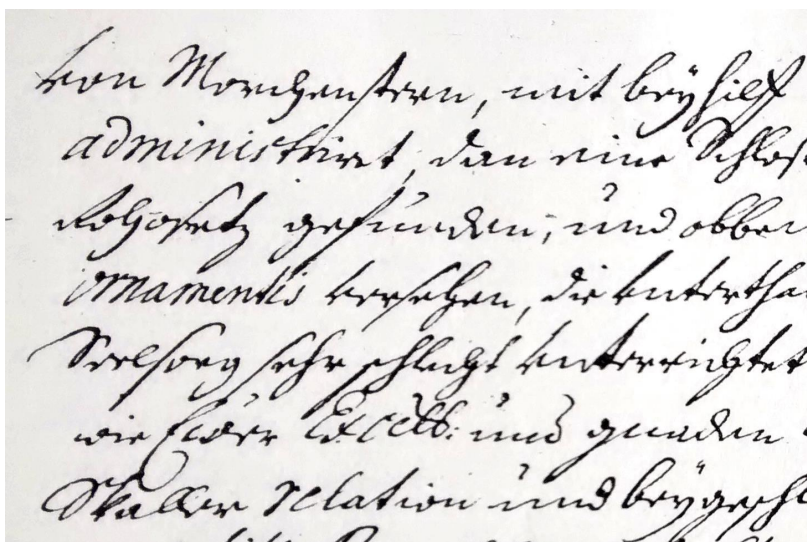 von Morchenstern, mit beyhilff
administriret, dan eine Schlos
Rohosetz gefunden, und obbe
ornamentis versehen, die Untertha
Seelsorg sehr schlecht unterrichtet
wie Euer Excell: und gnaden
Skaller relation und beygeschl